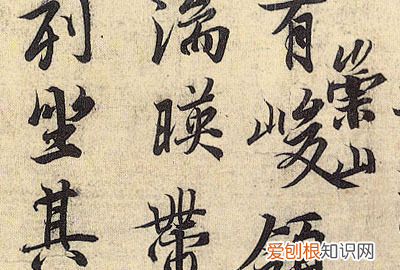 崇山
有峻領
湍暎帶
列坐其
爱刨根知识网